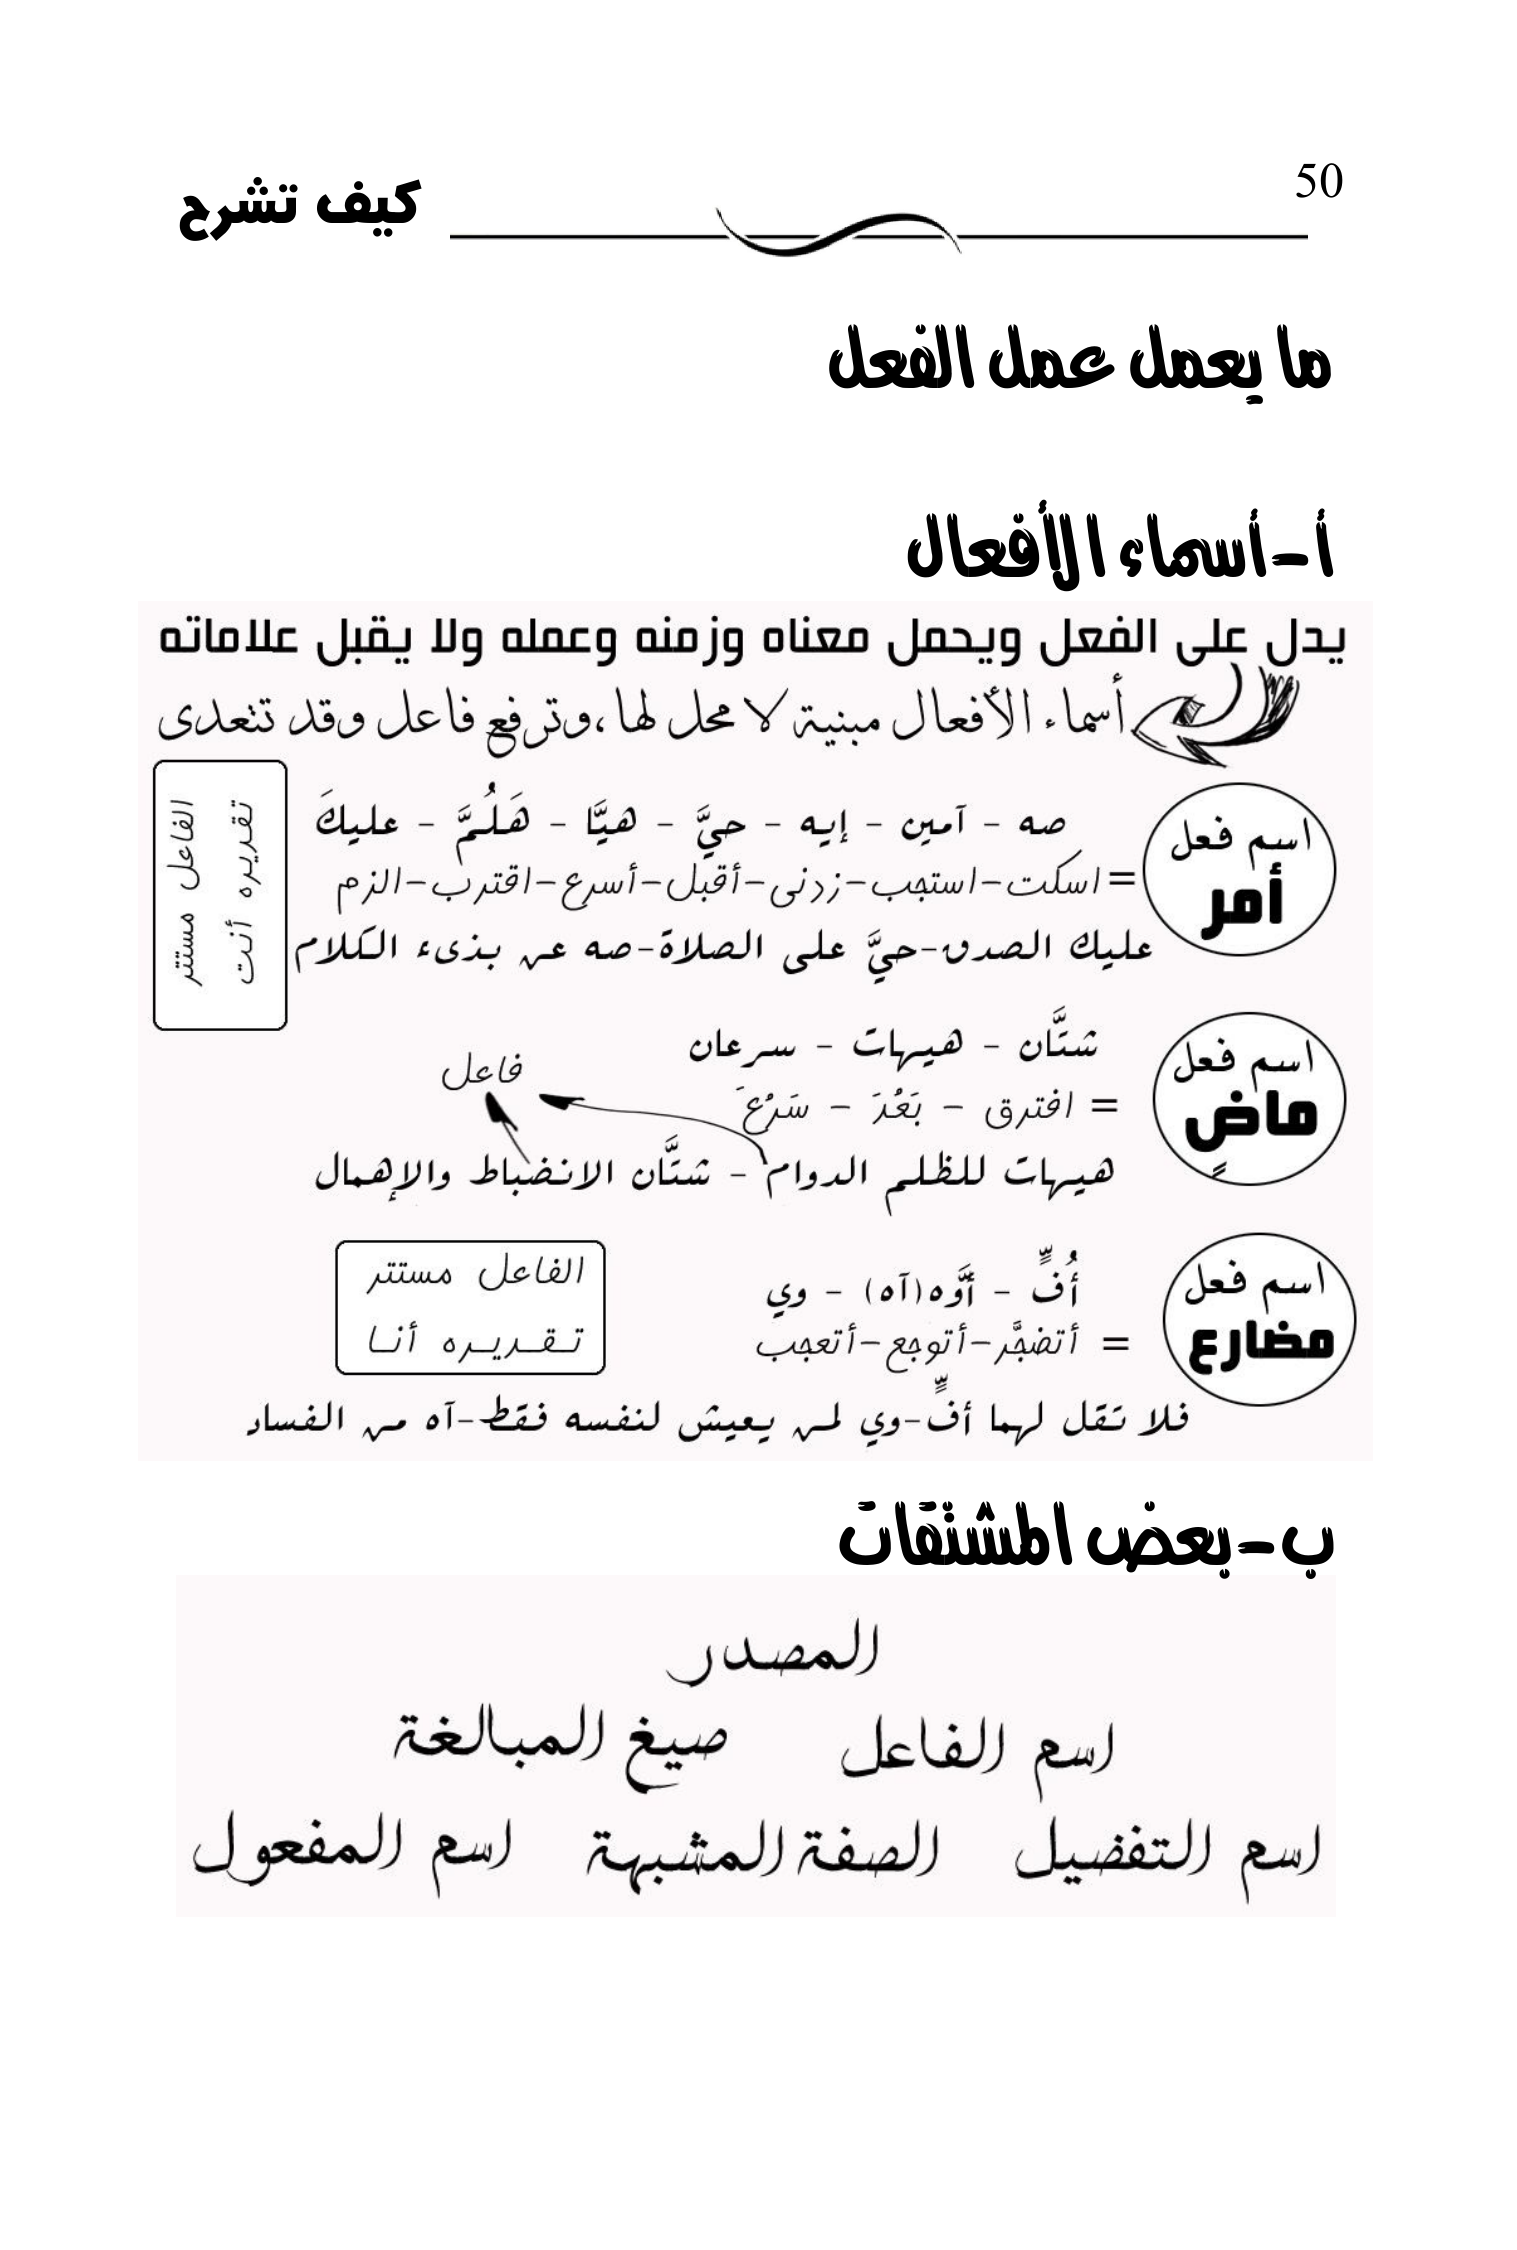 50
كيف تشرح
ما يعمل عمل الفعل
أ-أسماء الأفعال
يدل على الفعل ويحمل معناه وزمنه وعمله ولا يقبل علاماته
أسماء الأفعال مبنية لا محل لها،وترفع فاعل وقد تتعدى
اسم فعل
أمر
صه - آمين - إيه - حيَّ - هيَّا - هَلُمَّ - عليكَ
=اسكت-استجب-زدنى-أقبل-أسرع-اقترب-الزم
عليك الصدق-حيَّ على الصلاة-صه عن بذىء الكلام
الفاعل مستتر
تقديره أنت
اسم فعل
ماضٍ
شتَّان - هيهات - سرعان
= افترق - بَعُدَ - سَرُعَ
فاعل
هيهات للظلم الدوام - شتَّان الانضباط والإهمال
اسم فعل
مضارع
أُفٍّ - أوَّه(آه) - وي
= أتضجَّر-أتوجع-أتعجب
الفاعل مستتر
تقديره أنا
فلا تقل لهما أفٍّ-وي لمن يعيش لنفسه فقط-آه من الفساد
ب-بعض المشتقات
المصدر
اسم الفاعل صيغ المبالغة
اسم التفضيل الصفة المشبهة اسم المفعول